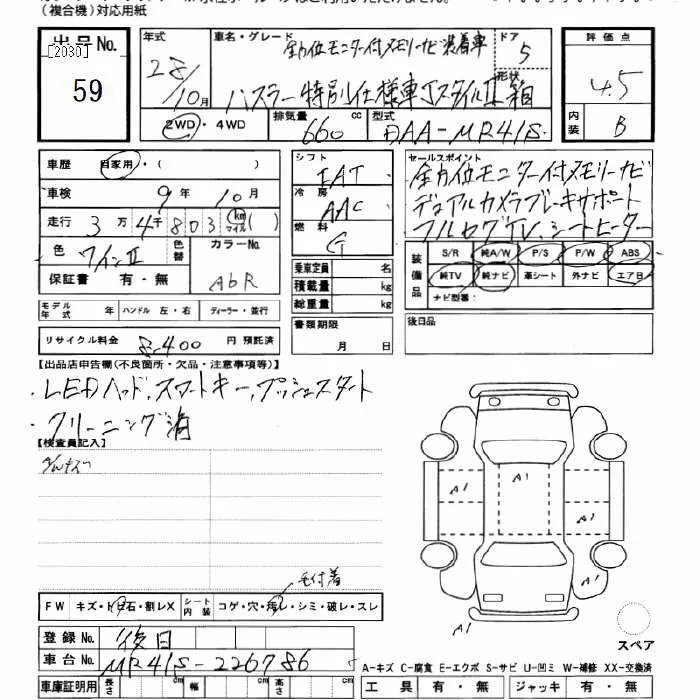 (複合機)対応用紙
出品No.
[2030]
59
年式
28/10月
車名・グレード
全方位モニター付メモリーナビ装着車
ハスラー特別仕様車JスタイルⅡ
ドア
5
形状
箱
2WD・4WD
排気量
660
cc
型式
DAA-MR41S
評価点
4.5
内装
B
車歴
自家用・( )
車検
9年10月
走行
3万4千803
km
マイル
( )
色
ワインⅡ
色替
カラーNo.
保証書
有・無
モデル年式
ハンドル 左・右
ディーラー・並行
リサイクル料金
8,400
円 預託済
シフト
冷房
AAC
燃料
G
乗車定員
名
積載量
kg
総重量
kg
書類期限
月 日
セールスポイント
全方位モニター付メモリーナビ
デュアルカメラブレーキサポート
フルセグTV、シートヒーター
装備品
S/R 純A/W P/S P/W ABS
純TV 純ナビ 革シート 外ナビ エアB
ナビ型番:
後日品
【出品店申告欄(不良箇所・欠品・注意事項等)】
・LEDヘッド、スマートキー、プッシュスタート
・クリーニング済
【検査員記入】
A1
A1
A1
A1
A1
毛付着
FW キズ・トビ石・割レX
シート内装
コゲ・穴・汚レ・シミ・破レ・スレ
登録No.
後日
車台No.
MR41S-226786
車庫証明用
長さ
cm
幅
cm
高さ
cm
スペア
A-キズ C-腐食 E-エクボ S-サビ U-凹ミ W-補修 XX-交換済
工具 有・無
ジャッキ 有・無